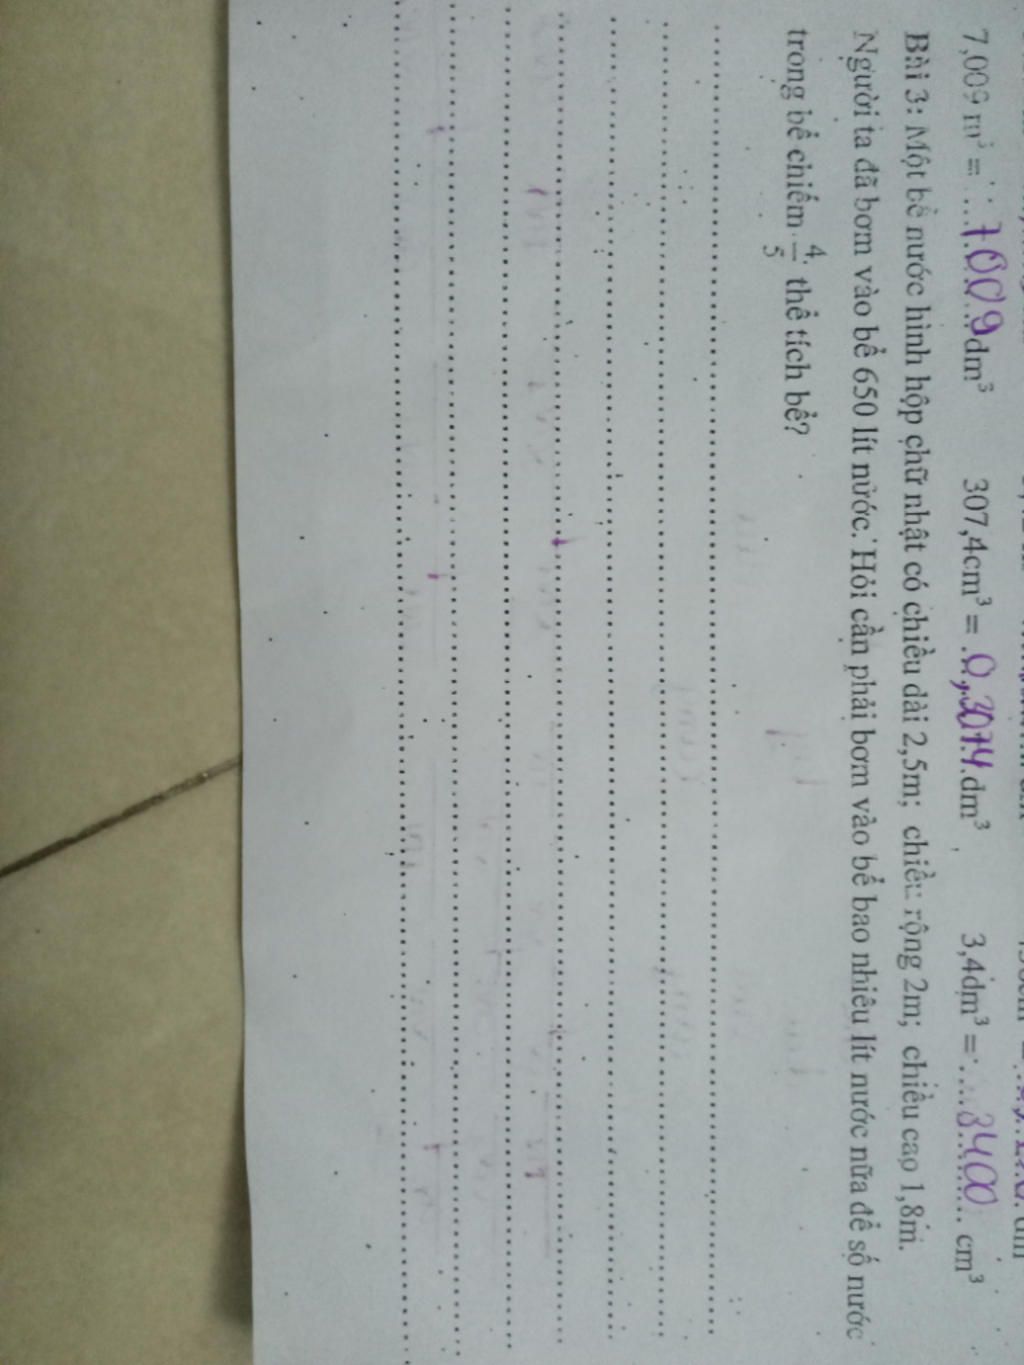 7,009 m³ = ...7009.dm³ 307,4cm³ = .0,3074.dm³ 3,4dm³ = ....3400... cm³
Bài 3: Một bể nước hình hộp chữ nhật có chiều dài 2,5m; chiều rộng 2m; chiều cao 1,8m.
Người ta đã bơm vào bể 650 lít nước. Hỏi cần phải bơm vào bể bao nhiêu lít nước nữa để số nước
trong bể chiếm 4/5 thể tích bể?